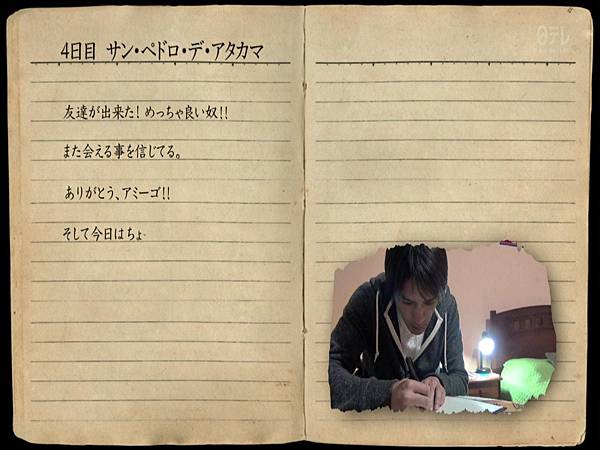 日テレ
4日目 サン・ペドロ・デ・アタカマ
友達が出来た! めっちゃ良い奴!!
また会える事を信じてる。
ありがとう、アミーゴ!!
そして今日はちょ